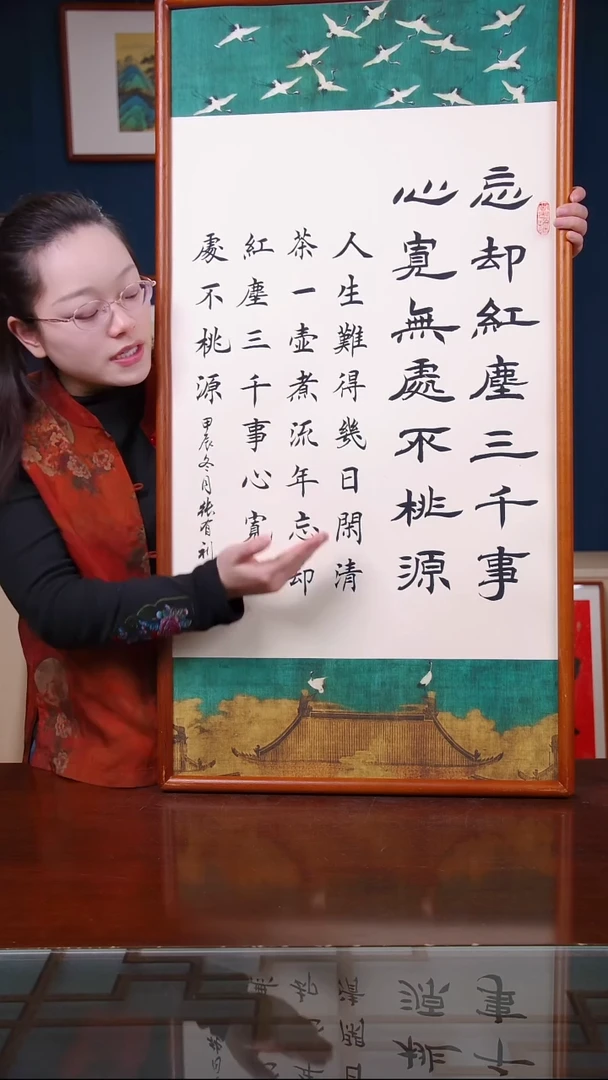 忘却紅塵三千事
心寬無處不桃源
人生難得幾日閑清
茶一壺煮流年忘却
紅塵三千事心寬
處不桃源
甲辰冬月張有利